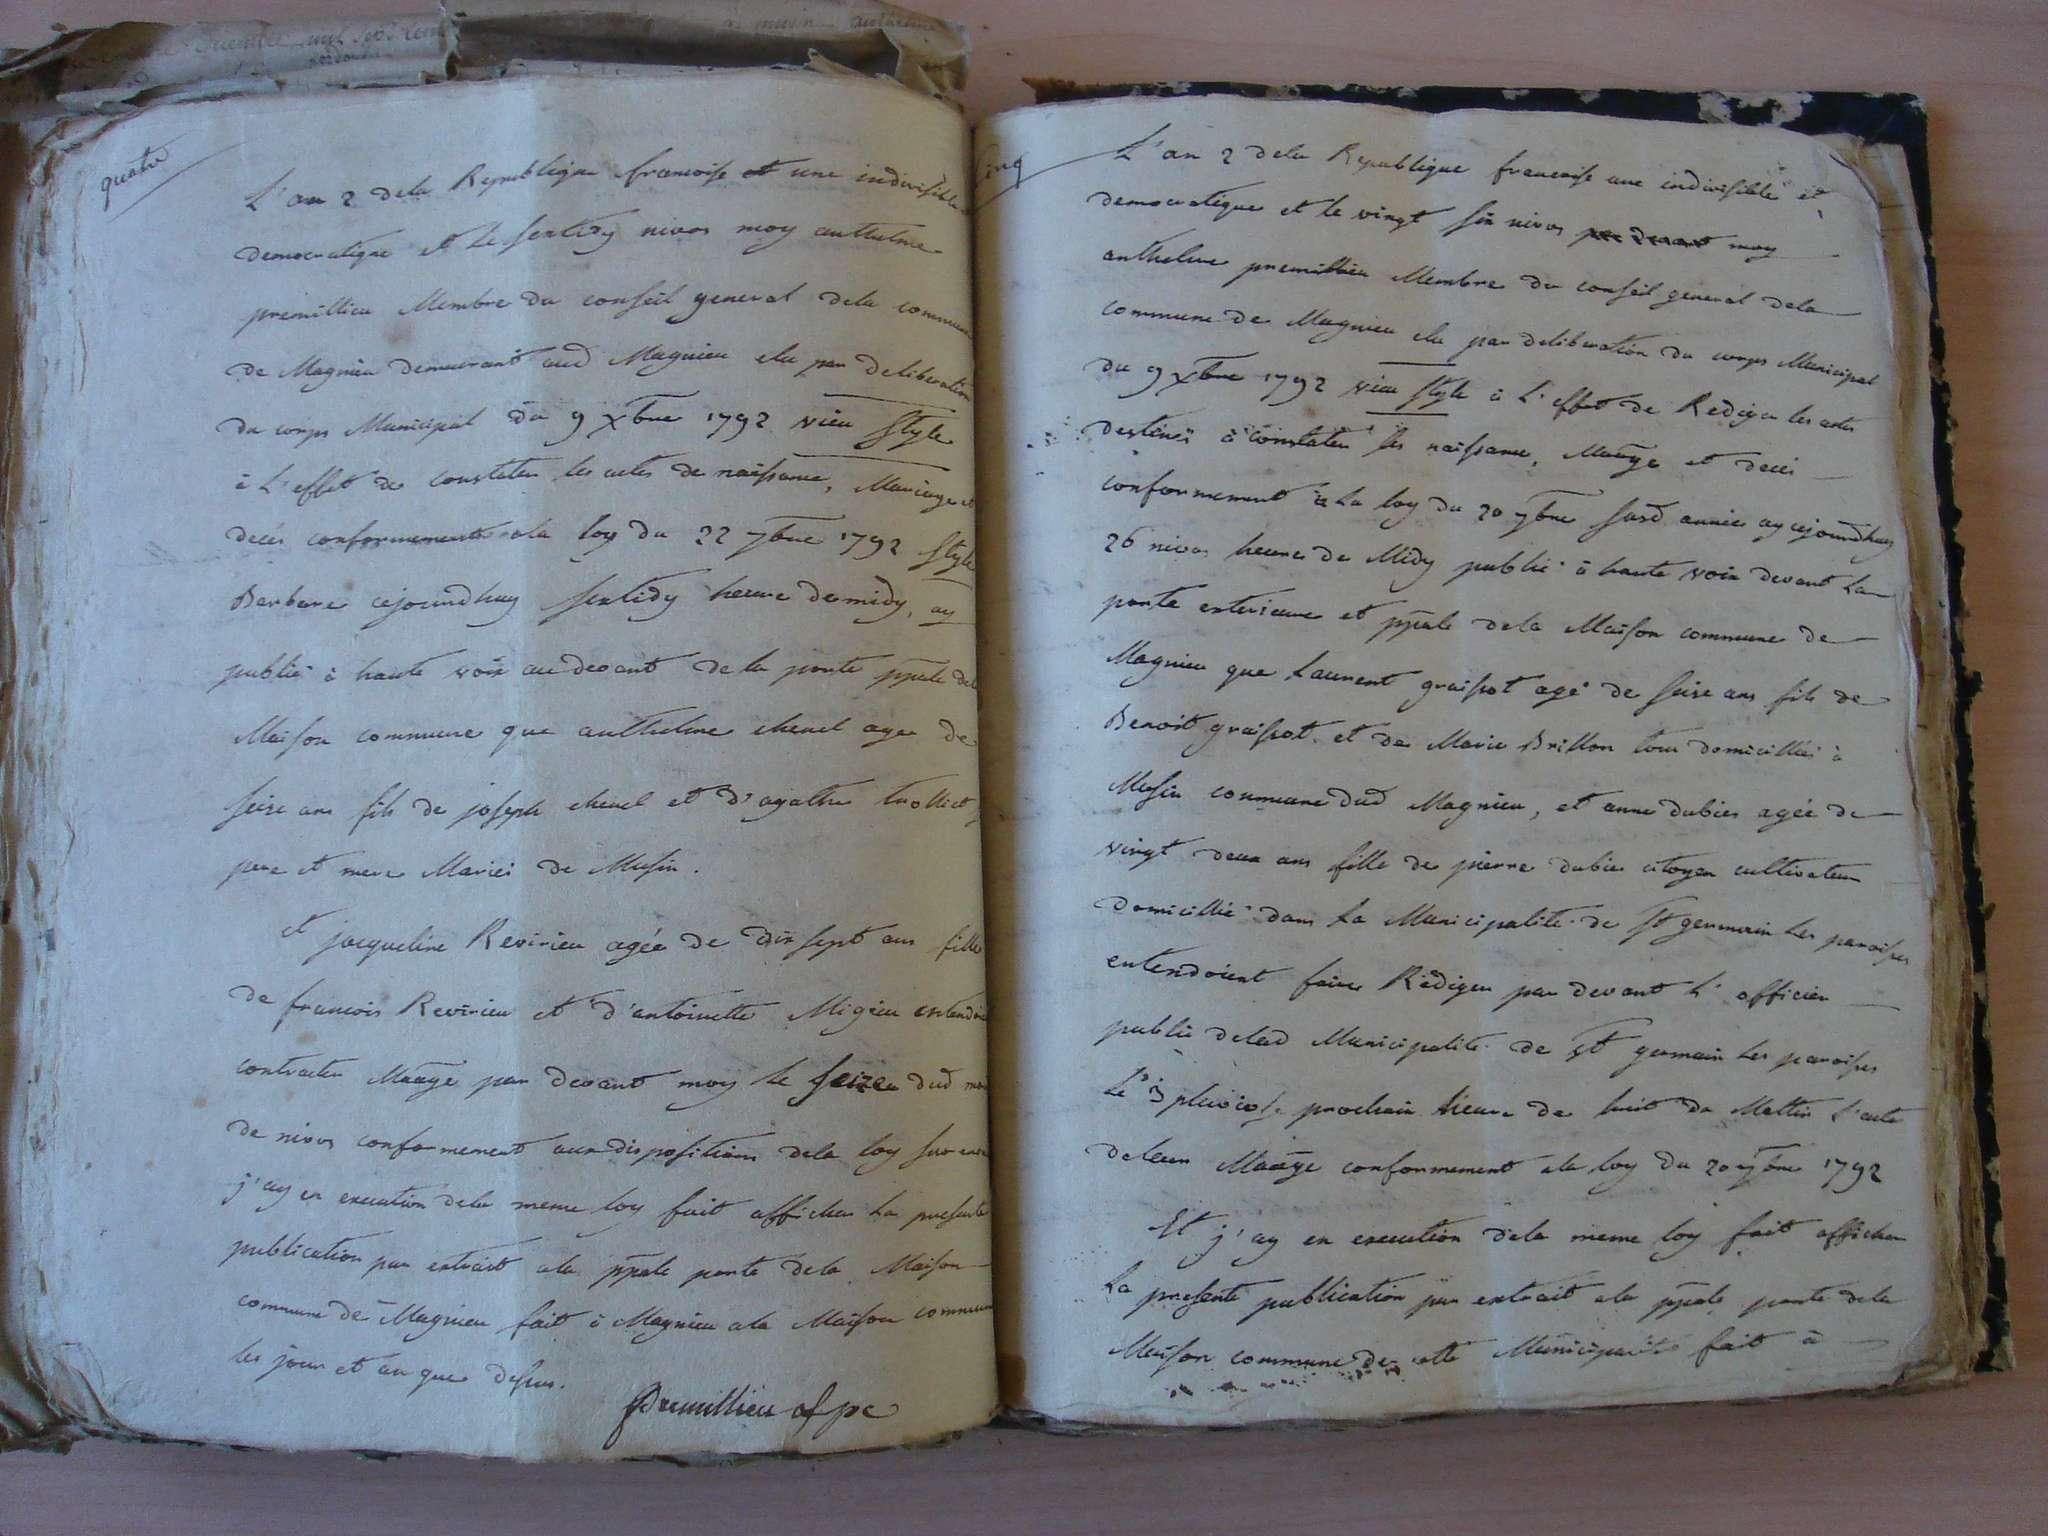 quatre
L'an 2 dela Republique francoise et une indivisible
democratique et le sextidy nivos moy anthelme
premillieu Membre du conseil general dela commune
de Magnieu demeurant aud Magnieu elu par deliberation
du corps Municipal du 9 Xbre 1792 vieu Style
à L'effet de constater les actes de naissance, Mariage et
decés conformement ala loy du 22 7bre 1792 Style
Barbare cejourdhuy sextidy heure de midy, ay
publié à haute voix au devant de la porte ppale dela
Maison commune que anthelme chenel age de
seise ans fils de joseph chenel et d'agathe trolliet
pere et mere Mariés de Musin.
et jacqueline Revirieu agée de dix sept ans fille
de francois Revirieu et d'antoinette Migieu entendoient
contracter Maage par devant moy le seize dud mois
de nivos conformement aux dispositions dela loy
j'ay en execution dela meme loy fait afficher La presente
publication par extrait ala ppale porte dela Maison
commune de Magnieu fait à Magnieu ala Maison commune
les jour et an que dessus.
Premillieu of pc
Cinq
L'an 2 dela Republique francoise une indivisible et
democratique et le vingt six nivos par devant moy
anthelme premillieu Membre du conseil general dela
commune de Magnieu elu par deliberation du corps Municipal
du 9 Xbre 1792 vieu Style à L'effet de Rediger les actes
destinés à constater les naissance, Maage et decés
conformement à La loy du 20 7bre susd année ay cejourdhuy
26 nivos heure de Midy publié à haute voix devant La
porte exterieure et ppale dela Maison commune de
Magnieu que Laurent graissot agé de seise ans fils de
Benoit graissot et de Marie Brillon tous domicilliés à
Musin commune dud Magnieu, et anne dubies agée de
vingt deux ans fille de pierre dubies citoyen cultivateur
domicillié dans La Municipalité de St germain Les paroisses
entendoient faire Rédiger par devant L'officier
public delad Municipalité de St germain Les paroisses
Le 3 pluviose prochain heure de huit du Mattin L'acte
deleur Maage conformement ala loy du 20 7bre 1792
Et j'ay en execution dela meme loy fait afficher
La presente publication par extrait ala ppale porte dela
Maison commune de cette Municipalité fait à